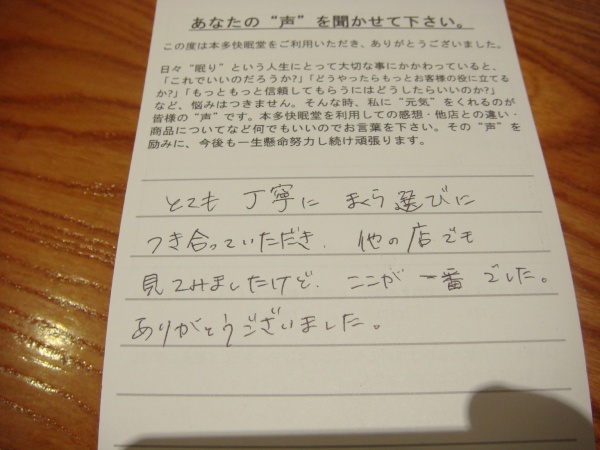 あなたの“声”を聞かせて下さい。
この度は本多快眠堂をご利用いただき、ありがとうございました。
日々“眠り”という人生にとって大切な事にかかわっていると、
「これでいいのだろうか?」「どうやったらもっとお客様の役に立てる
か?」「もっともっと信頼してもらうにはどうしたらいいのか?」
など、悩みはつきません。そんな時、私に“元気”をくれるのが
皆様の“声”です。本多快眠堂を利用しての感想・他店との違い・
商品についてなど何でもいいのでお言葉を下さい。その“声”を
励みに、今後も一生懸命努力し続け頑張ります。
とても丁寧にまくら選びに
つき合っていただき、他の店でも
見てみましたけど、ここが一番でした。
ありがとうございました。